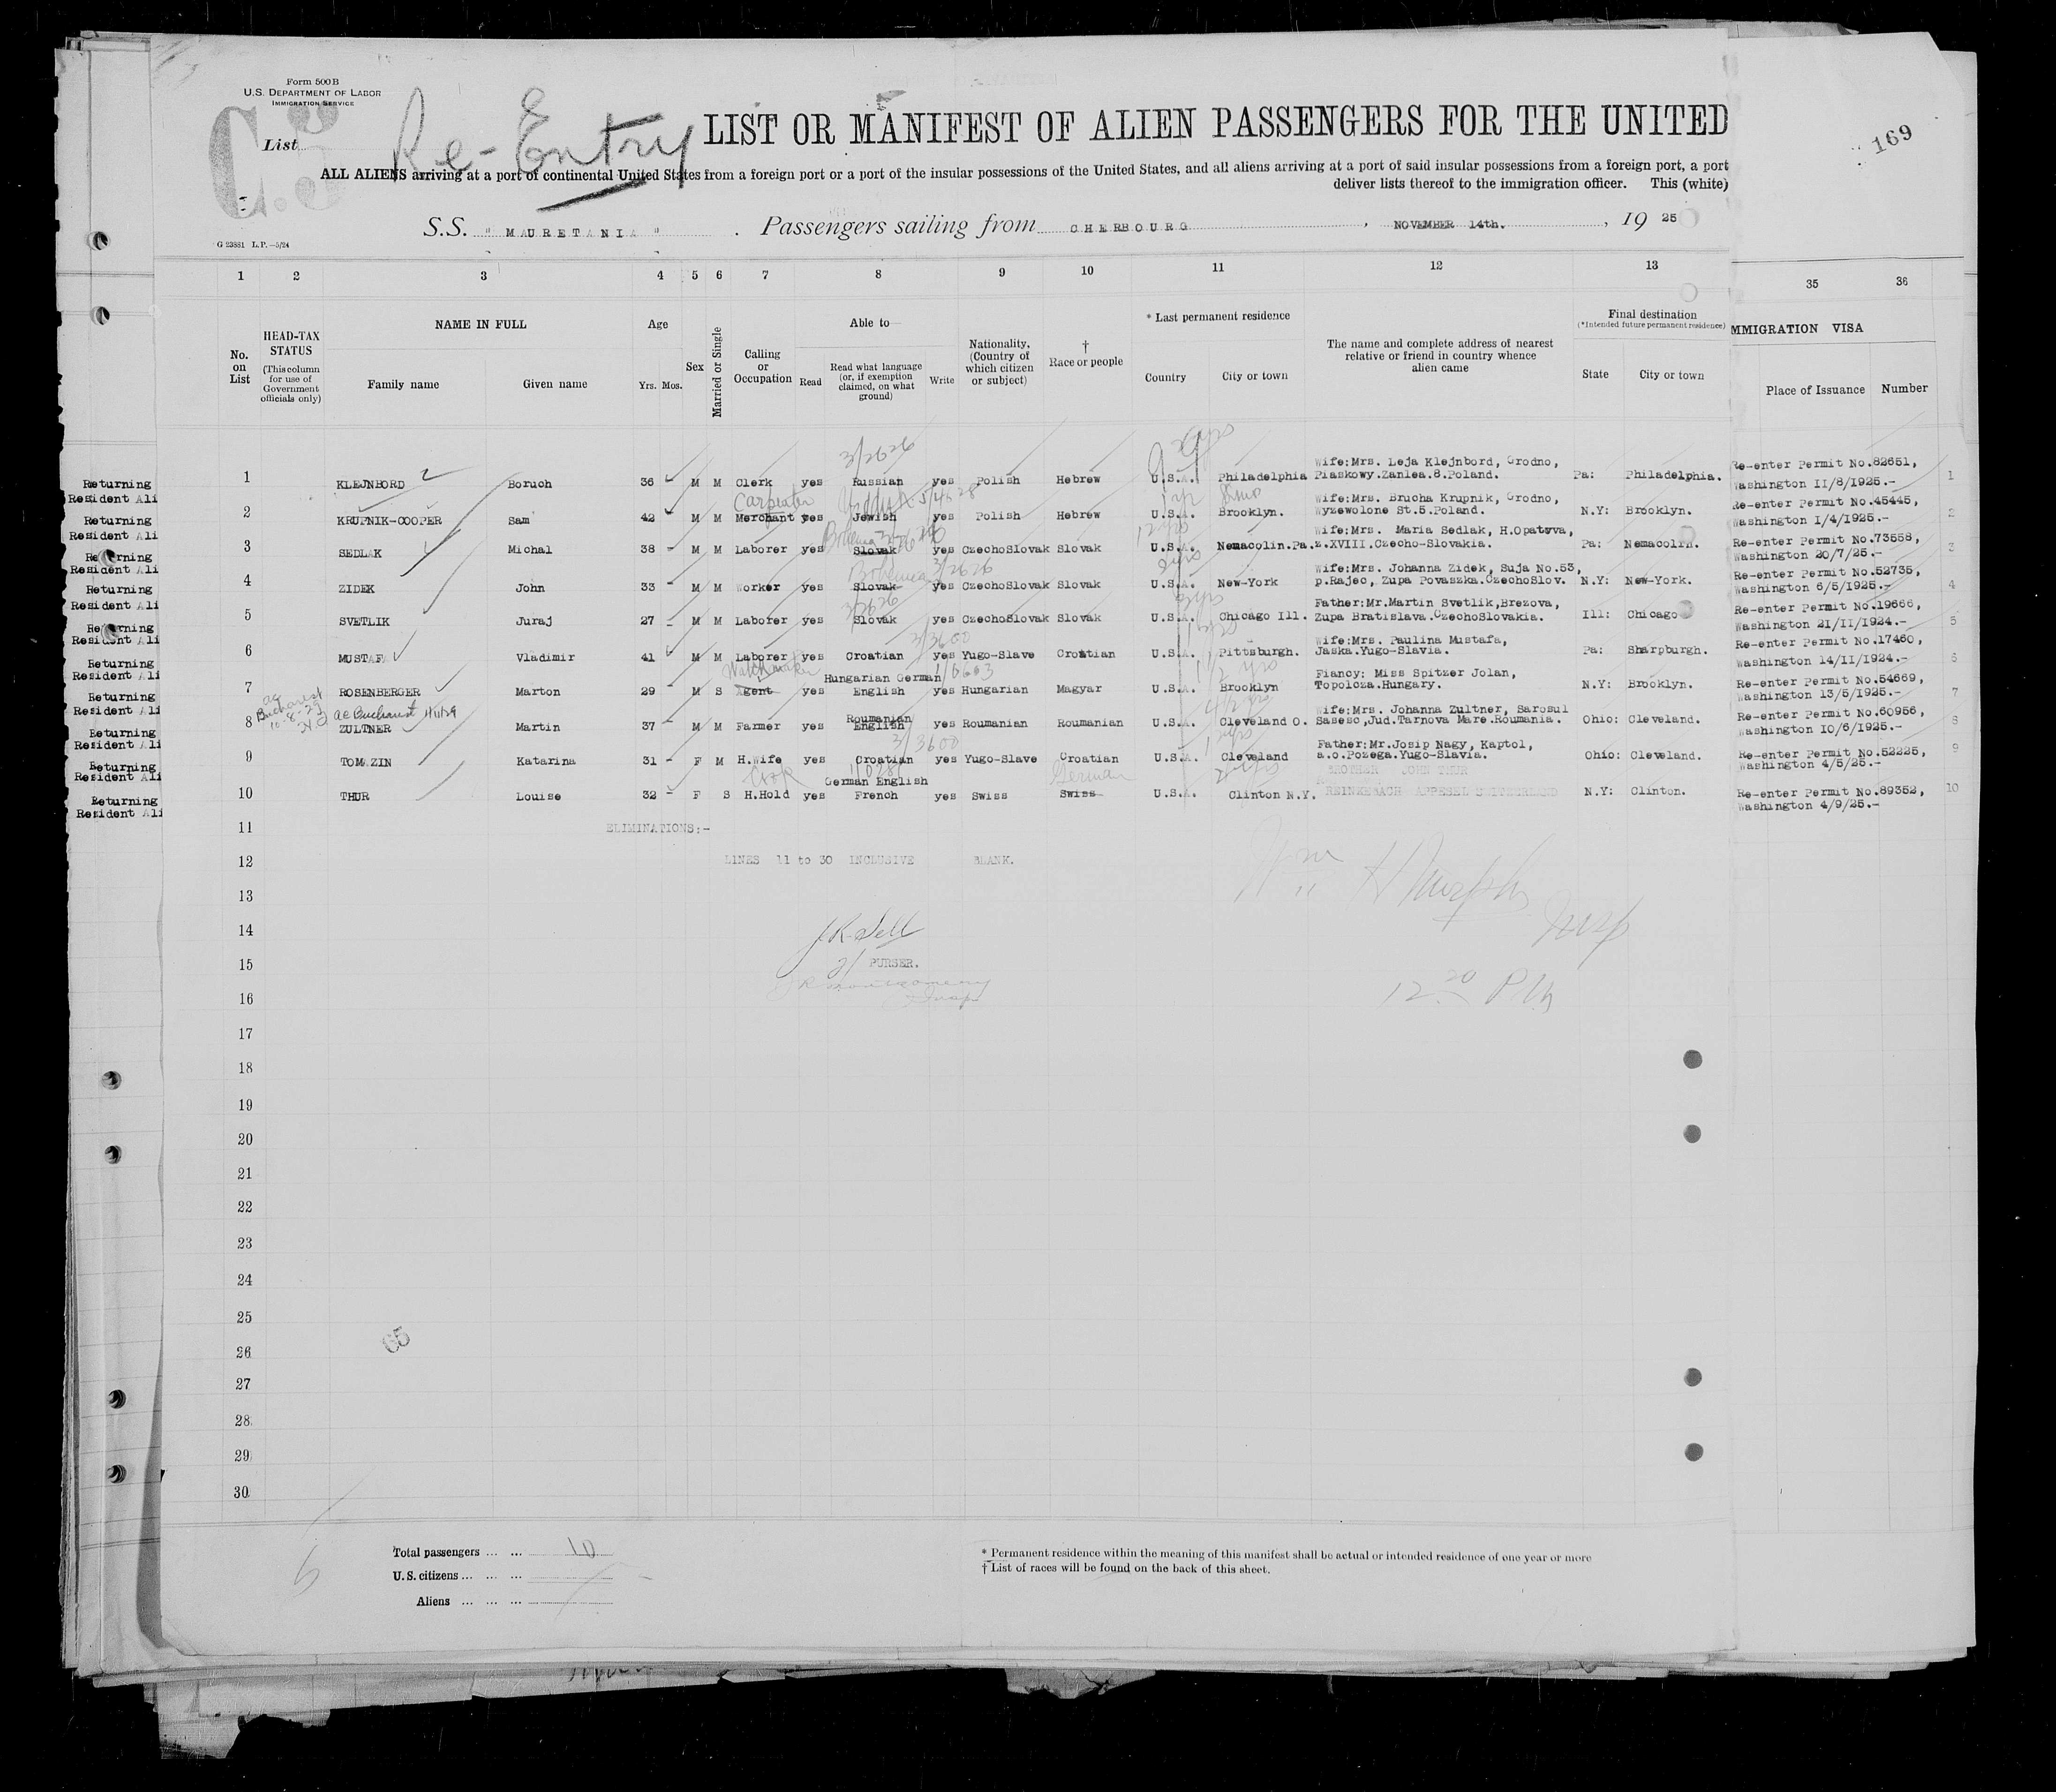 Form 500 B
U.S. DEPARTMENT OF LABOR
IMMIGRATION SERVICE
List
Re-Entry
LIST OR MANIFEST OF ALIEN PASSENGERS FOR THE UNITED
169
ALL ALIENS arriving at a port of continental United States from a foreign port or a port of the insular possessions of the United States, and all aliens arriving at a port of said insular possessions from a foreign port, a port
deliver lists thereof to the immigration officer. This (white)
S.S. "MAURETANIA". Passengers sailing from CHERBOURG, NOVEMBER 14th., 19 25
G 23881 L.P.—5/24
1 2 3 4 5 6 7 8 9 10 11 12 13 35 36
No. on List
HEAD-TAX STATUS
(This column for use of Government officials only)
NAME IN FULL
Family name Given name
Age
Yrs. Mos.
Sex
Married or Single
Calling or Occupation
Able to
Read
Read what language (or, if exemption claimed, on what ground)
Write
Nationality. (Country of which citizen or subject)
† Race or people
* Last permanent residence
Country City or town
The name and complete address of nearest relative or friend in country whence alien came
Final destination
(*Intended future permanent residence)
State City or town
MMIGRATION VISA
Place of Issuance Number
3/2626
Returning Resident Ali 1 KLEJNBORD Boruch 36 M M Clerk yes Russian yes Polish Hebrew U.S.A. Philadelphia Wife:Mrs. Leja Klejnbord, Grodno, Piaskowy.Zanlea.8.Poland. Pa: Philadelphia. Re-enter Permit No.82651, Washington II/8/1925.- 1
Carpenter
Returning Resident Ali 2 KRUPNIK-COOPER Sam 42 M M Merchant yes Jewish yes Polish Hebrew U.S.A. Brooklyn. Wife:Mrs. Brucha Krupnik, Grodno, Wyzewolone St.5.Poland. N.Y: Brooklyn. Re-enter Permit No.45445, Washington I/4/1925.- 2
Returning Resident Ali 3 SEDLAK Michal 38 M M Laborer yes Slovak yes CzechoSlovak Slovak U.S.A. Nemacolin.Pa. Wife:Mrs. Maria Sedlak, H.Opatvva, z.XVIII.Czecho-Slovakia. Pa: Nemacolin. Re-enter Permit No.73558, Washington 20/7/25.- 3
Bohemia 3/2626
Returning Resident Ali 4 ZIDEK John 33 M M Worker yes Slovak yes CzechoSlovak Slovak U.S.A. New-York Wife:Mrs. Johanna Zidek, Suja No.53, p.Rajec, Zupa Povaszka.CzechoSlov. N.Y: New-York. Re-enter Permit No.52735, Washington 6/5/1925.- 4
3/2626
Returning Resident Ali 5 SVETLIK Juraj 27 M M Laborer yes Slovak yes CzechoSlovak Slovak U.S.A. Chicago Ill. Father:Mr.Martin Svetlik,Brezova, Zupa Bratislava.CzechoSlovakia. Ill: Chicago Re-enter Permit No.19666, Washington 21/II/1924.- 5
3/3600
Returning Resident Ali 6 MUSTAFA Vladimir 41 M M Laborer yes Croatian yes Yugo-Slave Croatian U.S.A. Pittsburgh. Wife:Mrs. Paulina Mustafa, Jaska.Yugo-Slavia. Pa: Sharpburgh. Re-enter Permit No.17460, Washington 14/II/1924.- 6
Watchmaker
Returning Resident Ali 7 ROSENBERGER Marton 29 M S Agent yes Hungarian German English yes Hungarian Magyar U.S.A. Brooklyn Fiancy: Miss Spitzer Jolan, Topoloza.Hungary. N.Y: Brooklyn. Re-enter Permit No.54669, Washington 13/5/1925.- 7
Bucharest
Returning Resident Ali 8 ZULTNER Martin 37 M M Farmer yes Roumanian English yes Roumanian Roumanian U.S.A. Cleveland O. Wife:Mrs. Johanna Zultner, Sarosul Sasesc,Jud.Tarnova Mare.Roumania. Ohio: Cleveland. Re-enter Permit No.60956, Washington 10/6/1925.- 8
3/3600
Returning Resident Ali 9 TOMAZIN Katarina 31 F M H.Wife yes Croatian yes Yugo-Slave Croatian U.S.A. Cleveland Father:Mr.Josip Nagy, Kaptol, a.o.Pozega.Yugo-Slavia. Ohio: Cleveland. Re-enter Permit No.52225, Washington 4/5/25.- 9
Cook German
Returning Resident Ali 10 THUR Louise 32 F S H.Hold yes German English French yes Swiss Swiss U.S.A. Clinton N.Y. BROTHER JOHN THUR N.Y: Clinton. Re-enter Permit No.89352, Washington 4/9/25.- 10
11 ELIMINATIONS:-
12 LINES 11 to 30 INCLUSIVE BLANK.
13
Wm H Murphy
14
Insp
15 PURSER.
16 12 20 PM
17
18
19
20
21
22
23
24
25
65
26
27
28
29
30
Total passengers ... ... 10
U.S. citizens ... ... ...
Aliens ... ... ...
* Permanent residence within the meaning of this manifest shall be actual or intended residence of one year or more
† List of races will be found on the back of this sheet.